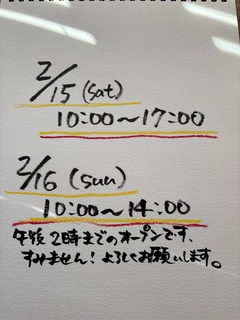 2/15 (Sat)
10:00〜17:00
2/16 (sun)
10:00〜14:00
午後2時までのオープンです、
すみません！よろしくお願いします。